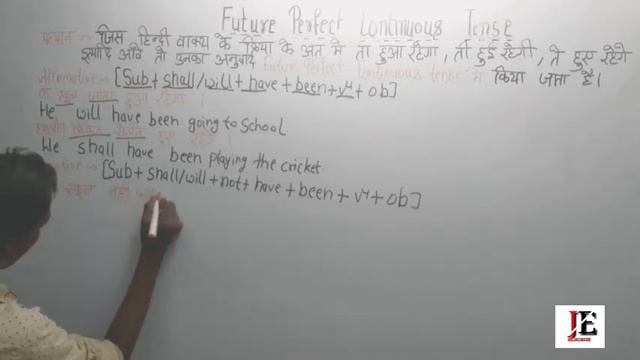 Future Perfect Continuous Tense
पहचान :- जिस हिन्दी वाक्य के क्रिया के अंत मे ता हुआ रहेगा, ती हुई रहेगी, ते हुए रहेंगे
इत्यादि आवे तो उनका अनुवाद Future Perfect Continuous tense मे किया जाता है।
Affirmative :- [Sub + shall/will + have + been + v⁴ + ob]
वह स्कूल जाता हुआ रहेगा।
He will have been going to School
हमलोग क्रिकेट खेलते हुए रहेंगे।
We shall have been playing the cricket.
[Sub + shall/will + not + have + been + v⁴ + ob]
स्कूल नहीं
JE